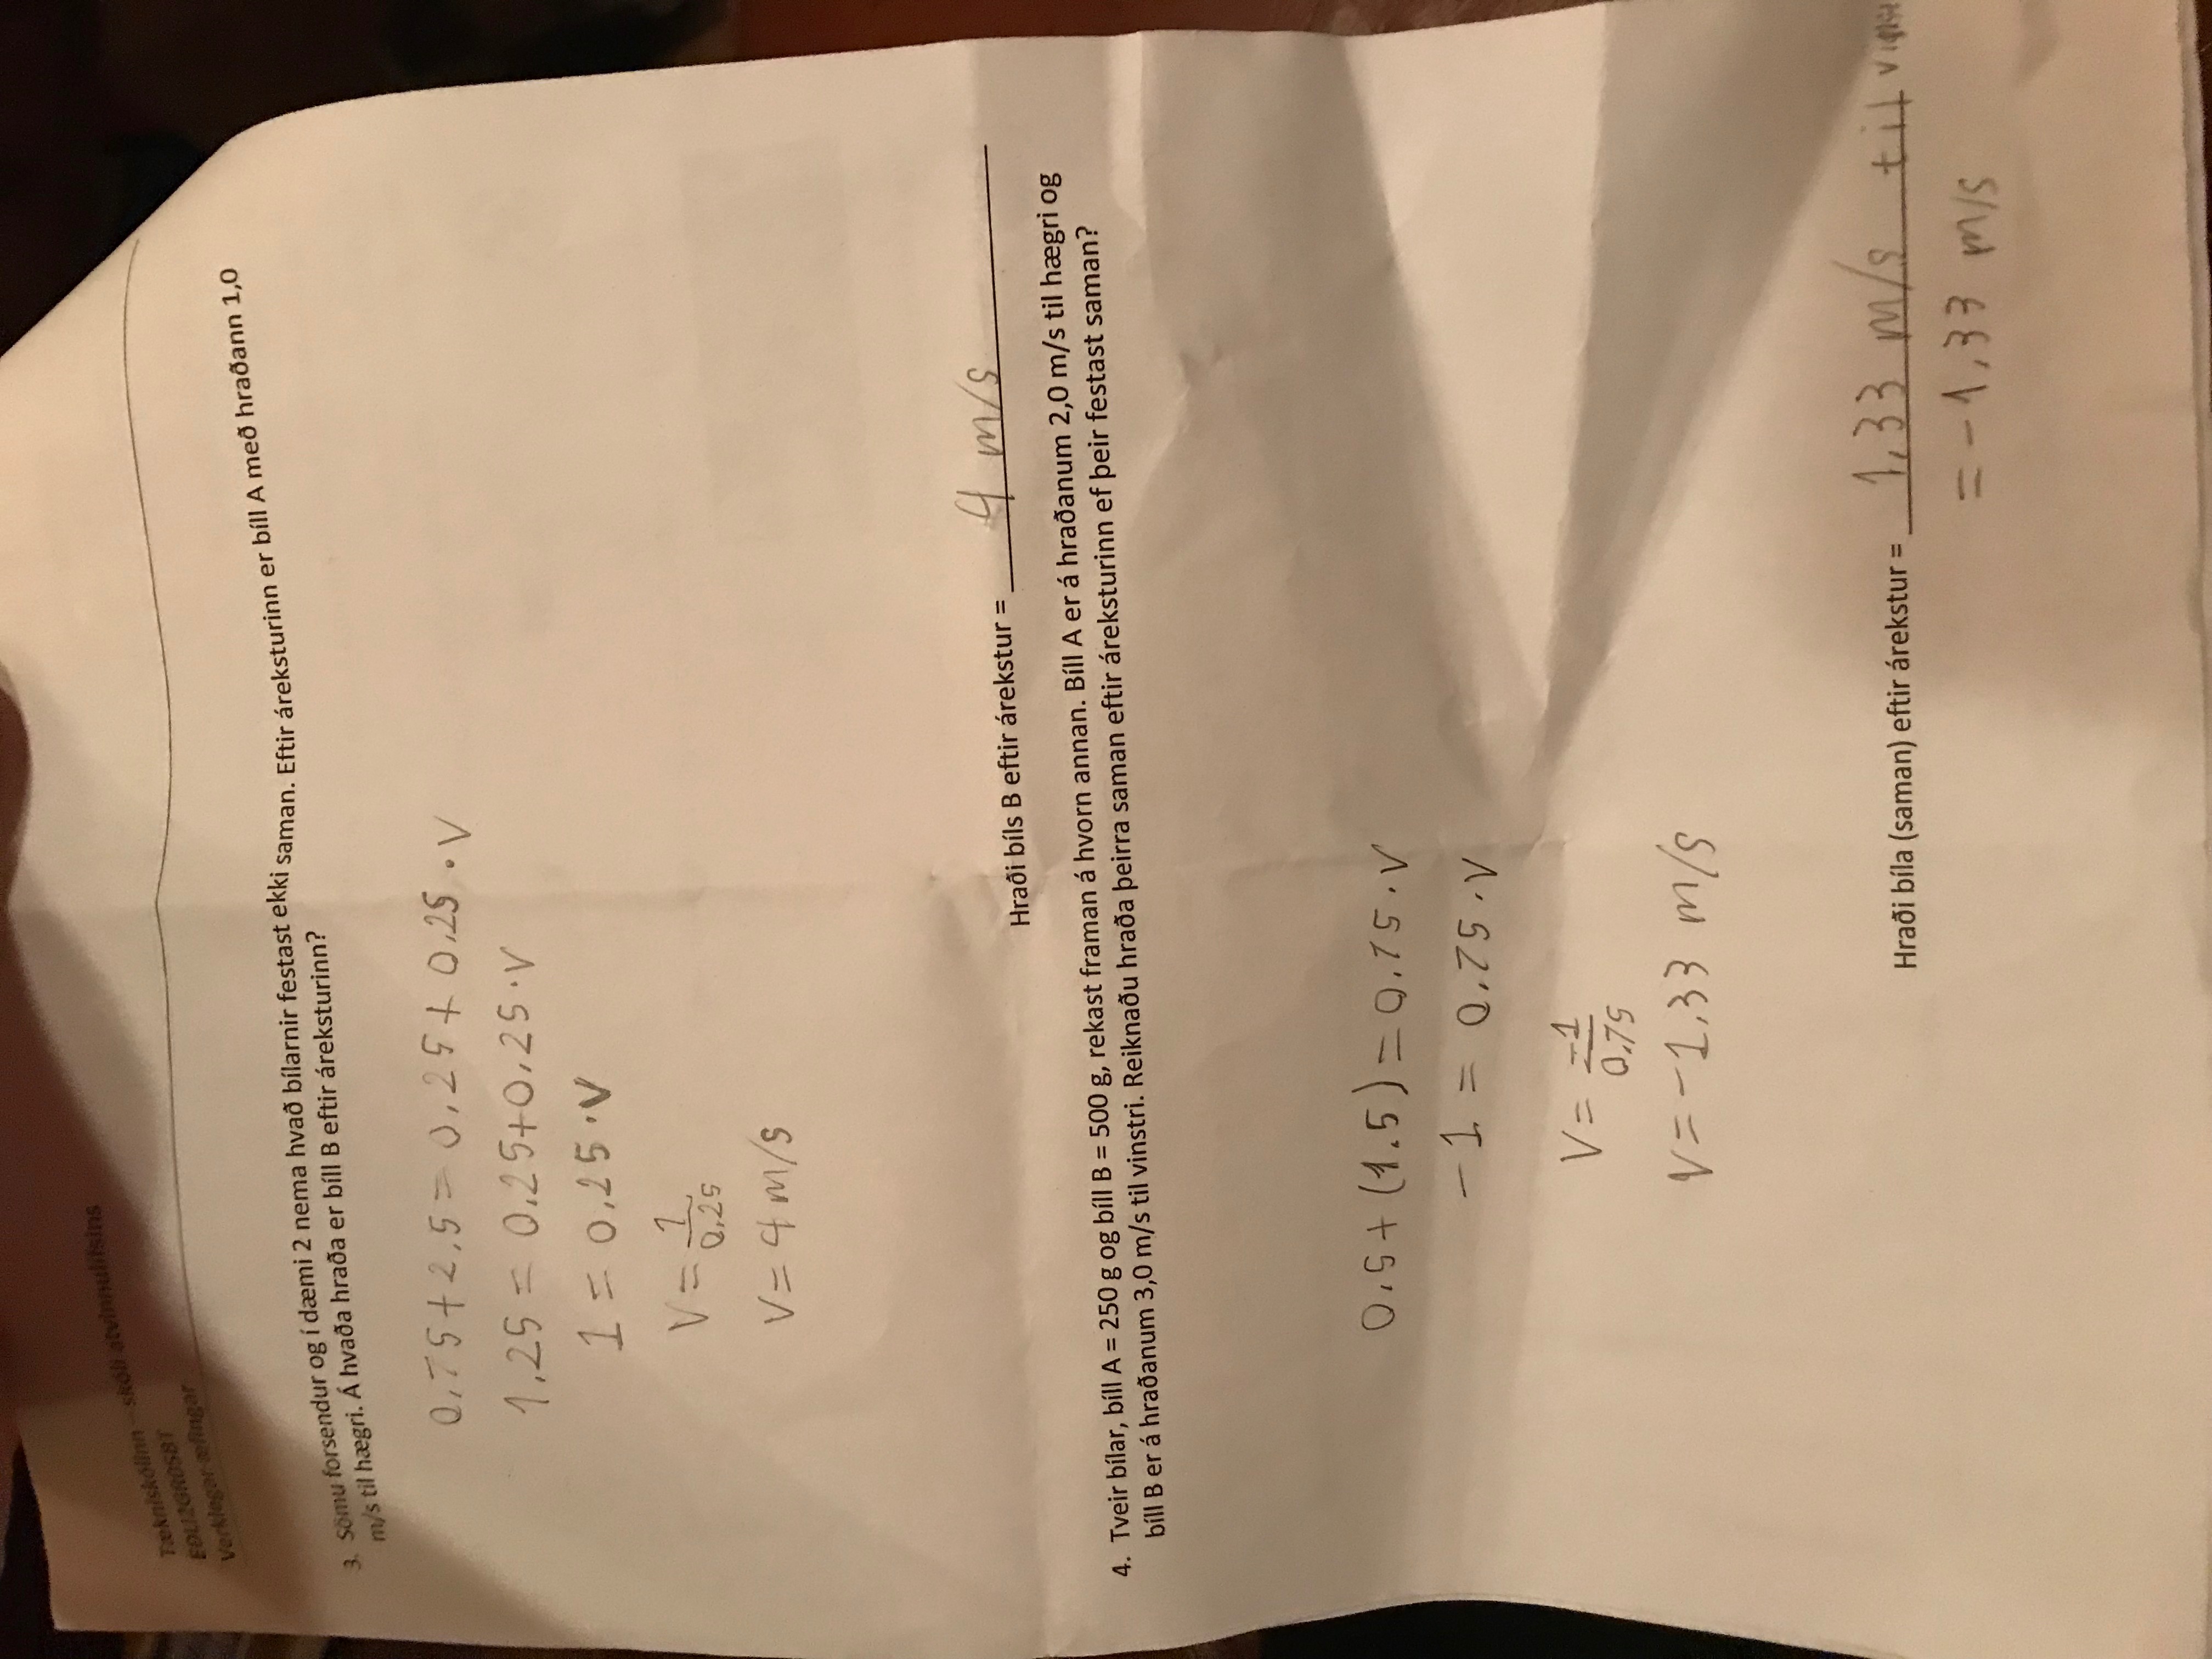 Tækniskólinn – skóli atvinnulífsins
EÐLI2GR05BT
Verklegar æfingar
3. Sömu forsendur og í dæmi 2 nema hvað bílarnir festast ekki saman. Eftir áreksturinn er bíll A með hraðann 1,0
m/s til hægri. Á hvaða hraða er bíll B eftir áreksturinn?
0,75+2,5=0,25+0,25·V
1,25=0,25+0,25·V
1=0,25·V
V=1/0,25
V=4 m/s
Hraði bíls B eftir árekstur = 4 m/s
4. Tveir bílar, bíll A = 250 g og bíll B = 500 g, rekast framan á hvorn annan. Bíll A er á hraðanum 2,0 m/s til hægri og
bíll B er á hraðanum 3,0 m/s til vinstri. Reiknaðu hraða þeirra saman eftir áreksturinn ef þeir festast saman?
0,5+(1.5)=0.75·V
-1=0,75·V
V=-1/0,75
V=-1,33 m/s
Hraði bíla (saman) eftir árekstur = 1,33 m/s til
=-1,33 m/s